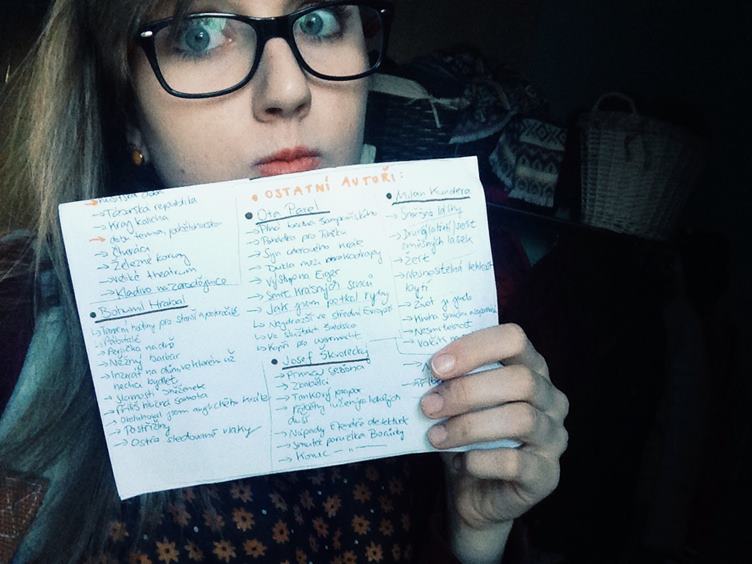 → Táborská republika
→ Kraj kalicha
→ doba temna, pobělohorská
→ Čtveráci
→ Železné koruny
→ Veliké theatrum
→ Kladivo na čarodějnice
• Bohumil Hrabal
→ Taneční hodiny pro starší a pokročilé
→ Pábitelé
→ Perlička na dně
→ Něžný barbar
→ Inzerát na dům, ve kterém už
nechci bydlet
→ Slavnosti sněženek
→ Příliš hlučná samota
→ Obsluhoval jsem anglického krále
→ Postřižiny
→ Ostře sledované vlaky
• OSTATNÍ AUTOŘI:
• Ota Pavel
→ Plná bedna šampaňského
→ Pohádka pro Tatínka
→ Syn celerového krále
→ Dukla mezi mrakodrapy
→ Výstup na Eiger
→ Smrt krásných srnců
→ Jak jsem potkal ryby
→ Nejdražší ve střední Evropě
→ Ve službách Švédska
→ Kapři pro wehrmacht
• Josef Škvorecký
→ Prima sezóna
→ Zbabělci
→ Tankový prapor
→ Příběh inženýra lidských
duší
→ Nápady čtenáře detektivek
→ Smutek poručíka Borůvky
→ Konec —"—
• Milan Kundera
→ Směšné lásky
→ Druhý sešit
směšných lásek
→ Žert
→ Nesnesitelná lehkost
bytí
→ Život je jinde
→ Kniha smíchu
→ Nesmrtelnost
→ Valčík